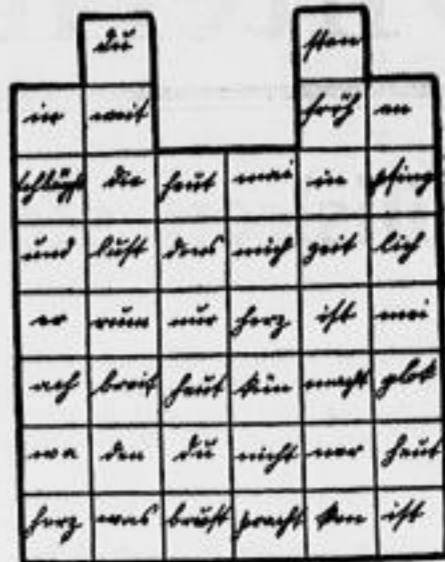 du sten
in weit fröh an
schlüpft die heut mai in pfing
und luft dens mich zeit lich
er rum nur herz ist mei
ach breit heut kün macht glok
wa den du nicht ner heut
herz was brust pracht ken ist